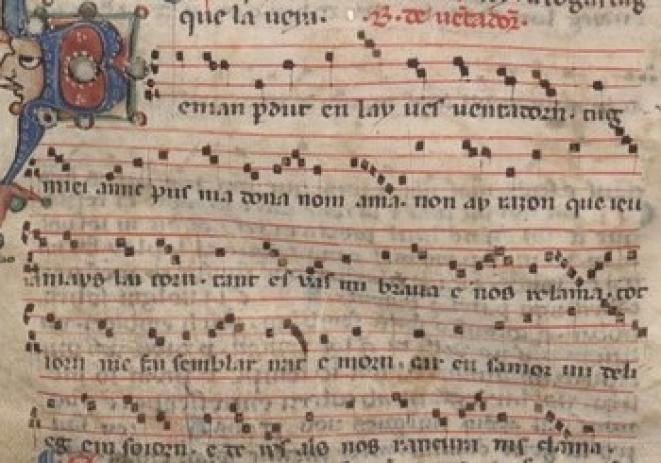 que la uent. B. de uētadorn.
Be man pdut en lay ues uentadorn. tug
miei amic pus ma dona nom ama. non ay razon que ieu
iamays lai torn. tant es uas mi braua e nos reclama. tot
iorn me fai semblar nar e morn. car en samor mi deli
eg em soiorn. e de res als nos rancura nis clama.